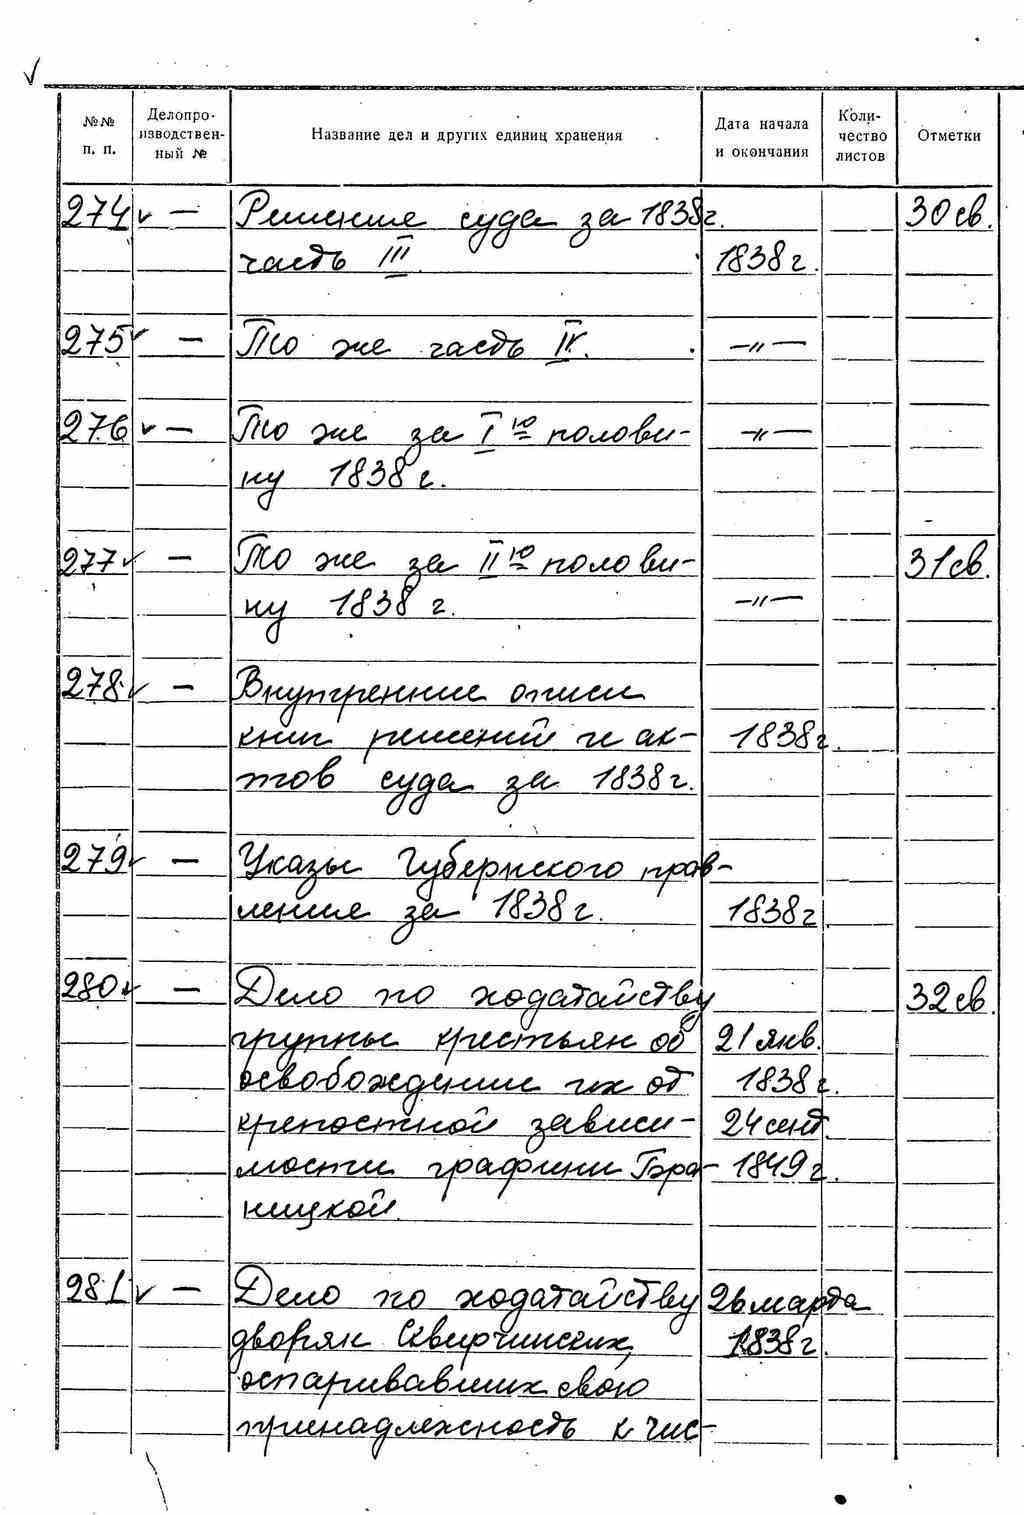 №№ п. п. Делопроизводственный № Название дел и других единиц хранения Дата начала и окончания Количество листов Отметки
274 ✓ — Решение суда за 1838г. 30 св.
часть III 1838 г.
275 ✓ — То же часть IV. —"—
276 ✓ — То же за I ю полови- —"—
ну 1838 г.
277 ✓ — То же за II ю полови- 31 св.
ну 1838 г. —"—
278 ✓ — Внутренние описи
книг решений и ак- 1838 г.
тов суда за 1838 г.
279 ✓ — Указы Губернского прав-
ления за 1838 г. 1838 г
280 ✓ — Дело по ходатайству 32 св.
группы крестьян об 21 янв.
освобождении их от 1838 г.
крепостной зависи- 24 сент.
мости графини Бра- 1849 г.
ницкой.
281 ✓ — Дело по ходатайству 26 марта
дворян Сквирчинских, 1838 г.
оспаривавших свою
принадлежность к чис-